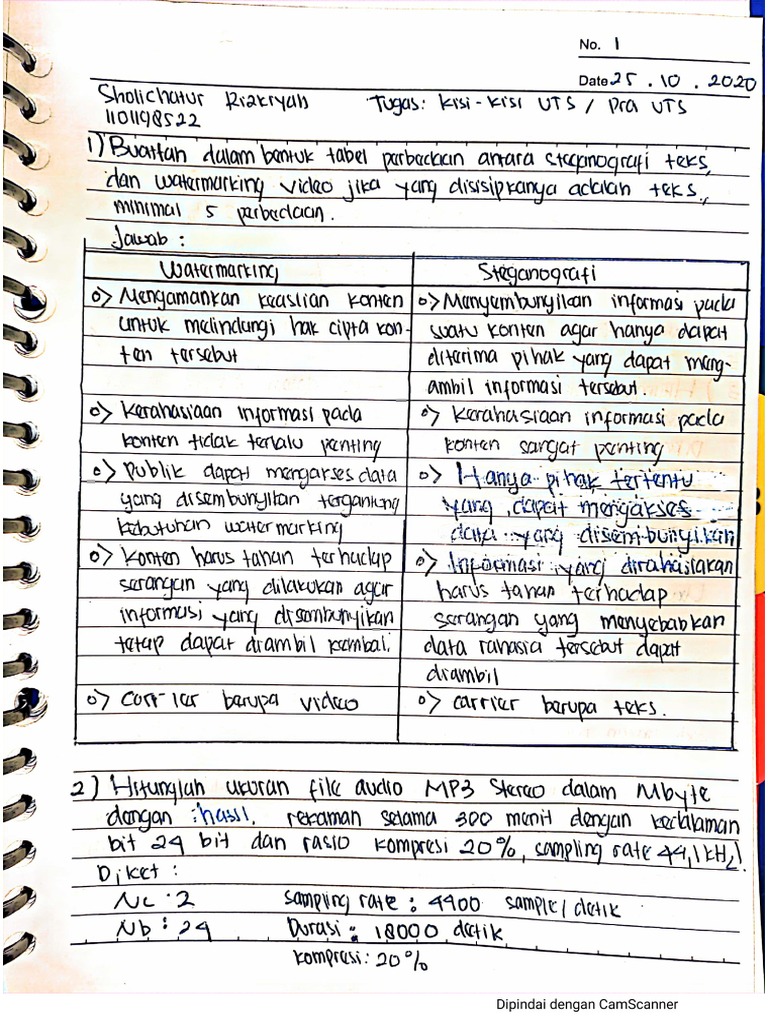 No. 1
Date 25 . 10 . 2020
Sholichatur Rizkiyah Tugas: Kisi-kisi UTS / Pra UTS
1101198522
1) Buatlah dalam bentuk tabel perbedaan antara steganografi teks,
dan watermarking video jika yang disisipkanya adalah teks,
minimal 5 perbedaan.
Jawab :
Watermarking Steganografi
o> Mengamankan keaslian konten
untuk melindungi hak cipta kon-
ten tersebut
o> Menyembunyikan informasi pada
suatu konten agar hanya dapat
diterima pihak yang dapat meng-
ambil informasi tersebut.
o> Kerahasiaan informasi pada
konten tidak terlalu penting
o> Kerahasiaan informasi pada
konten sangat penting
o> Publik dapat mengakses data
yang disembunyikan tergantung
kebutuhan watermarking
o> Hanya pihak tertentu
yang dapat mengakses
data yang disembunyikan
o> Konten harus tahan terhadap
serangan yang dilakukan agar
informasi yang disembunyikan
tetap dapat diambil kembali.
o> Informasi yang dirahasiakan
harus tahan terhadap
serangan yang menyebabkan
data rahasia tersebut dapat
diambil
o> Carrier berupa video
o> carrier berupa teks.
2) Hitunglah ukuran file audio MP3 Stereo dalam Mbyte
dengan hasil rekaman selama 300 menit dengan kedalaman
bit 24 bit dan rasio kompresi 20%, sampling rate 44,1 kHz!
Diket :
Nc : 2 Sampling rate : 4400 sample/detik
Nb : 24 Durasi : 18000 detik
kompresi : 20%
Dipindai dengan CamScanner